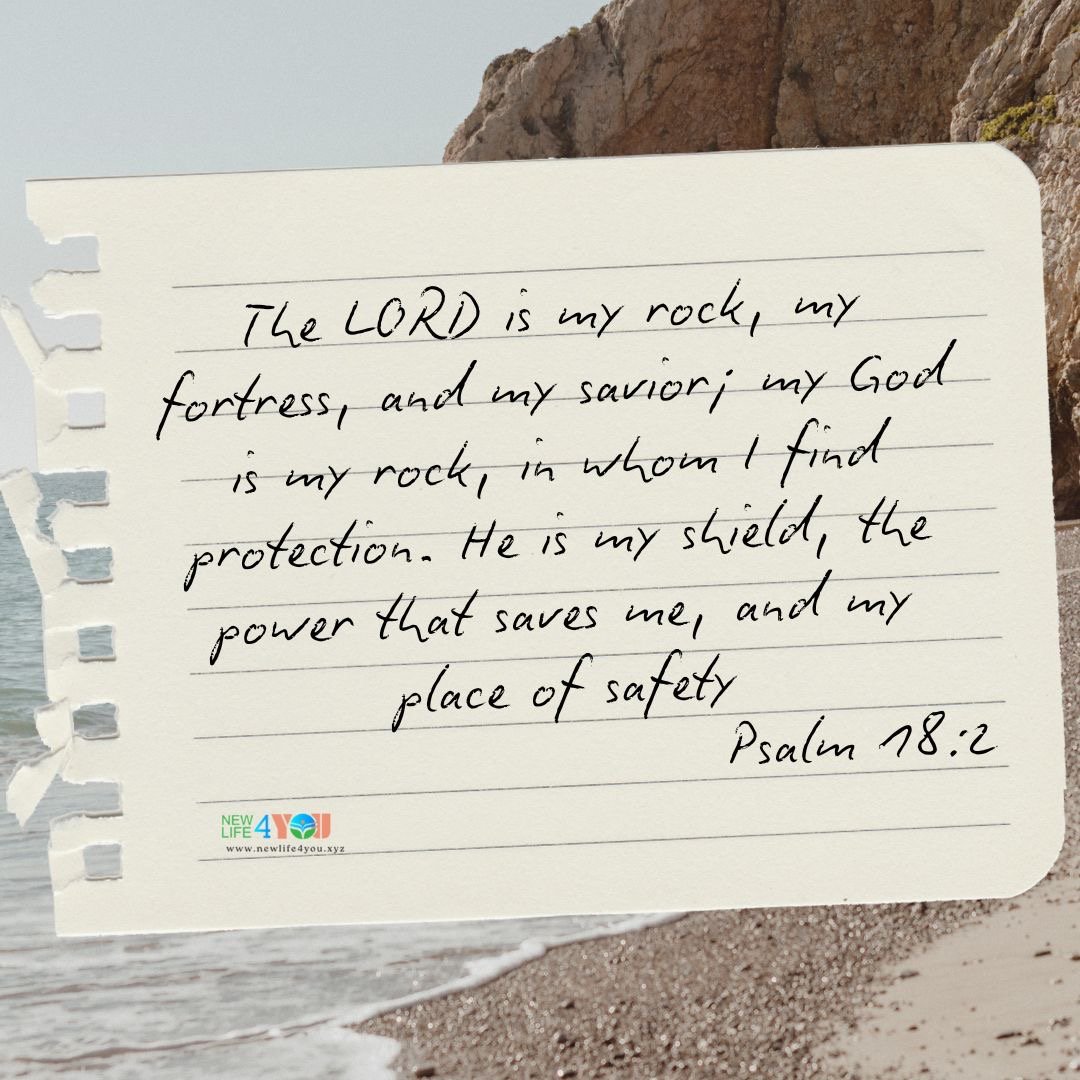 The LORD is my rock, my
fortress, and my savior; my God
is my rock, in whom I find
protection. He is my shield, the
power that saves me, and my
place of safety
Psalm 18:2
NEW
LIFE 4YOU
www.newlife4you.xyz